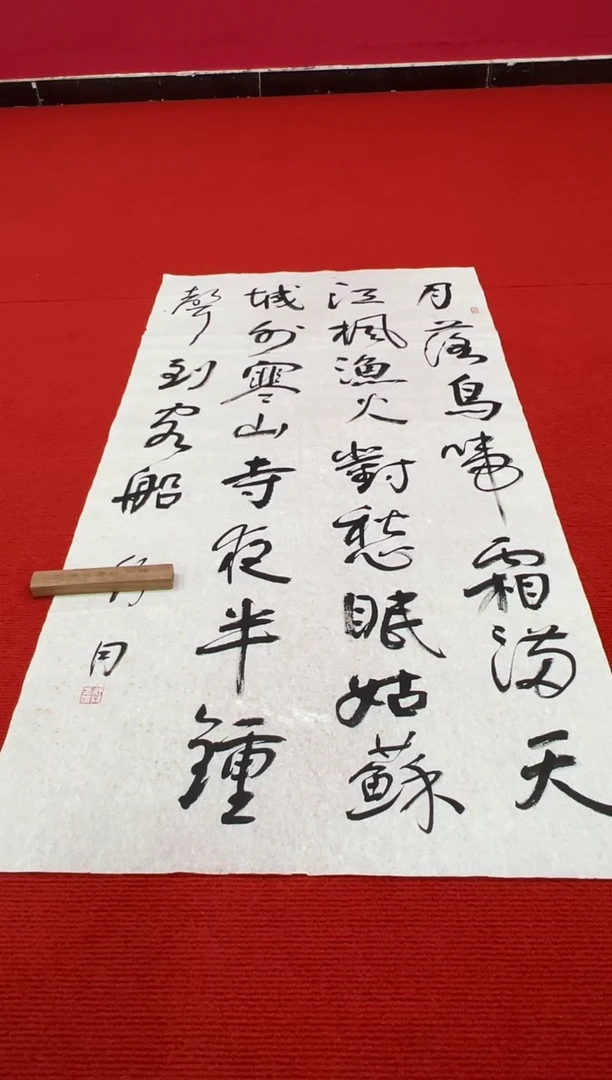 月落烏啼霜滿天
江楓漁火對愁眠姑蘇
城外寒山寺夜半鍾
聲到客船